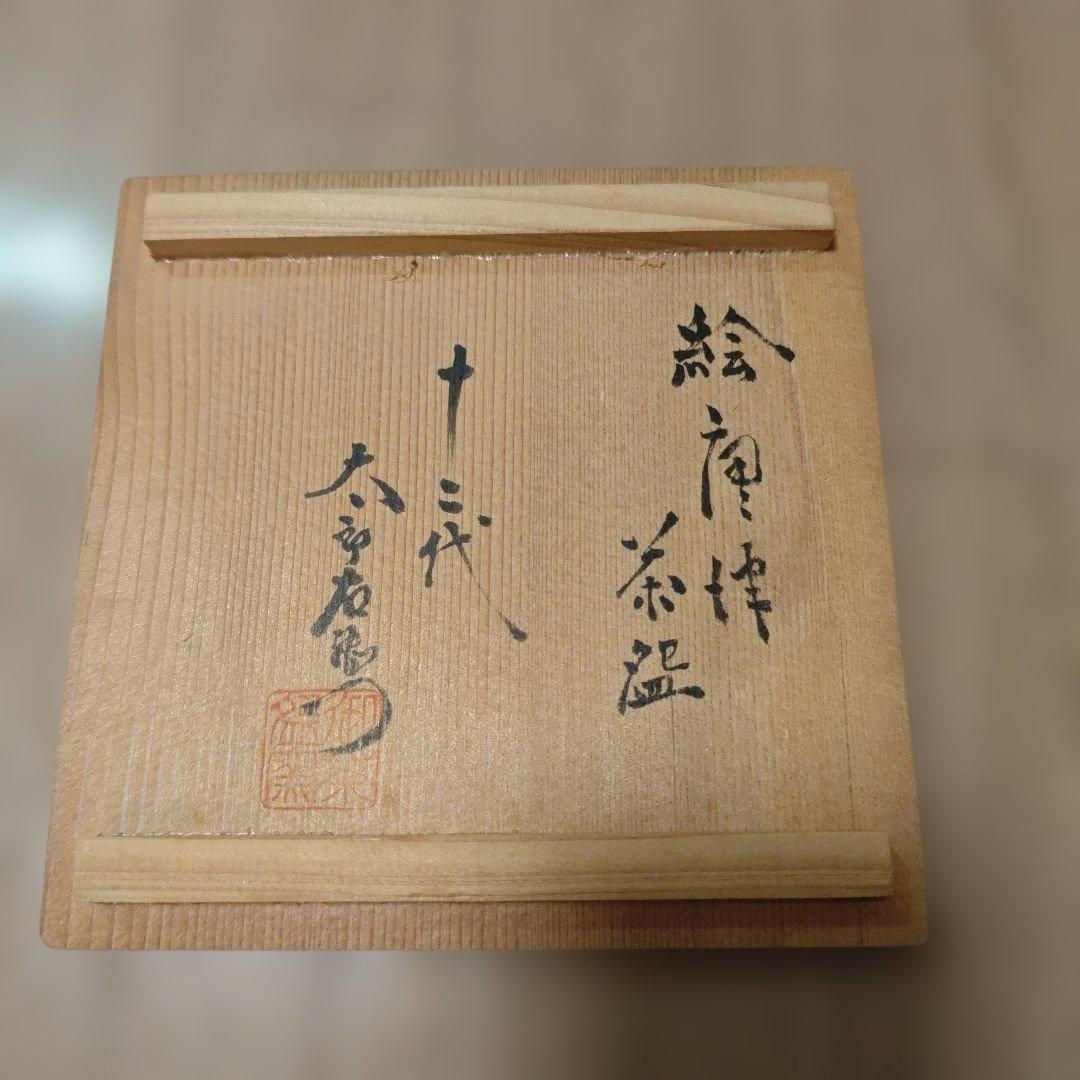 絵唐津
茶盌
十二代
太郎右衛門
御茶